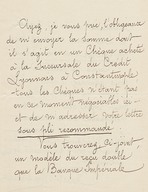 Ayez je vous prie, l'obligeance
de m'envoyer la somme dont
il s'agit en un Chèque acheté
à la Succursale du Crédit
Lyonnais à Constantinople
tous les Chèques n'étant pas
en ce moment négociables et
de m'adresser votre lettre
sous pli recommandé.
Vous trouverez, ci-joint
un modèle du reçu double
que la Banque Impériale